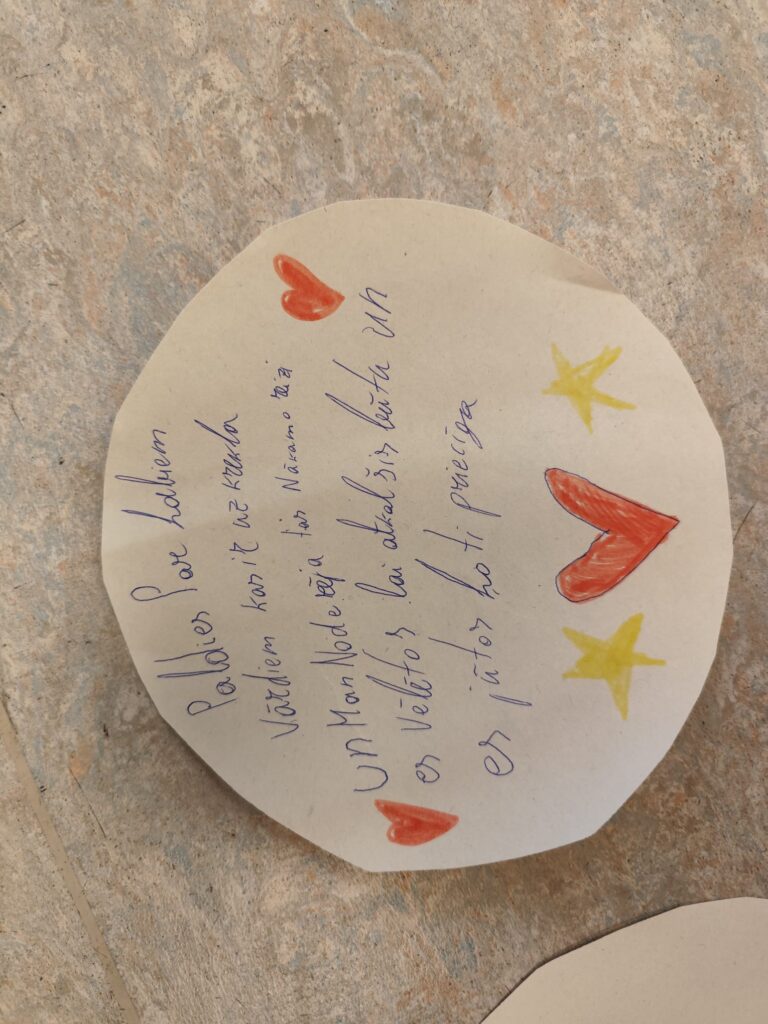 Paldies Par Labiem
Vārdiem kas ir uz krekla
un Man Noderēja tas Nākamo reizi
es Vēlētos lai atkal šis būtu un
es jūtos ļoti priecīga